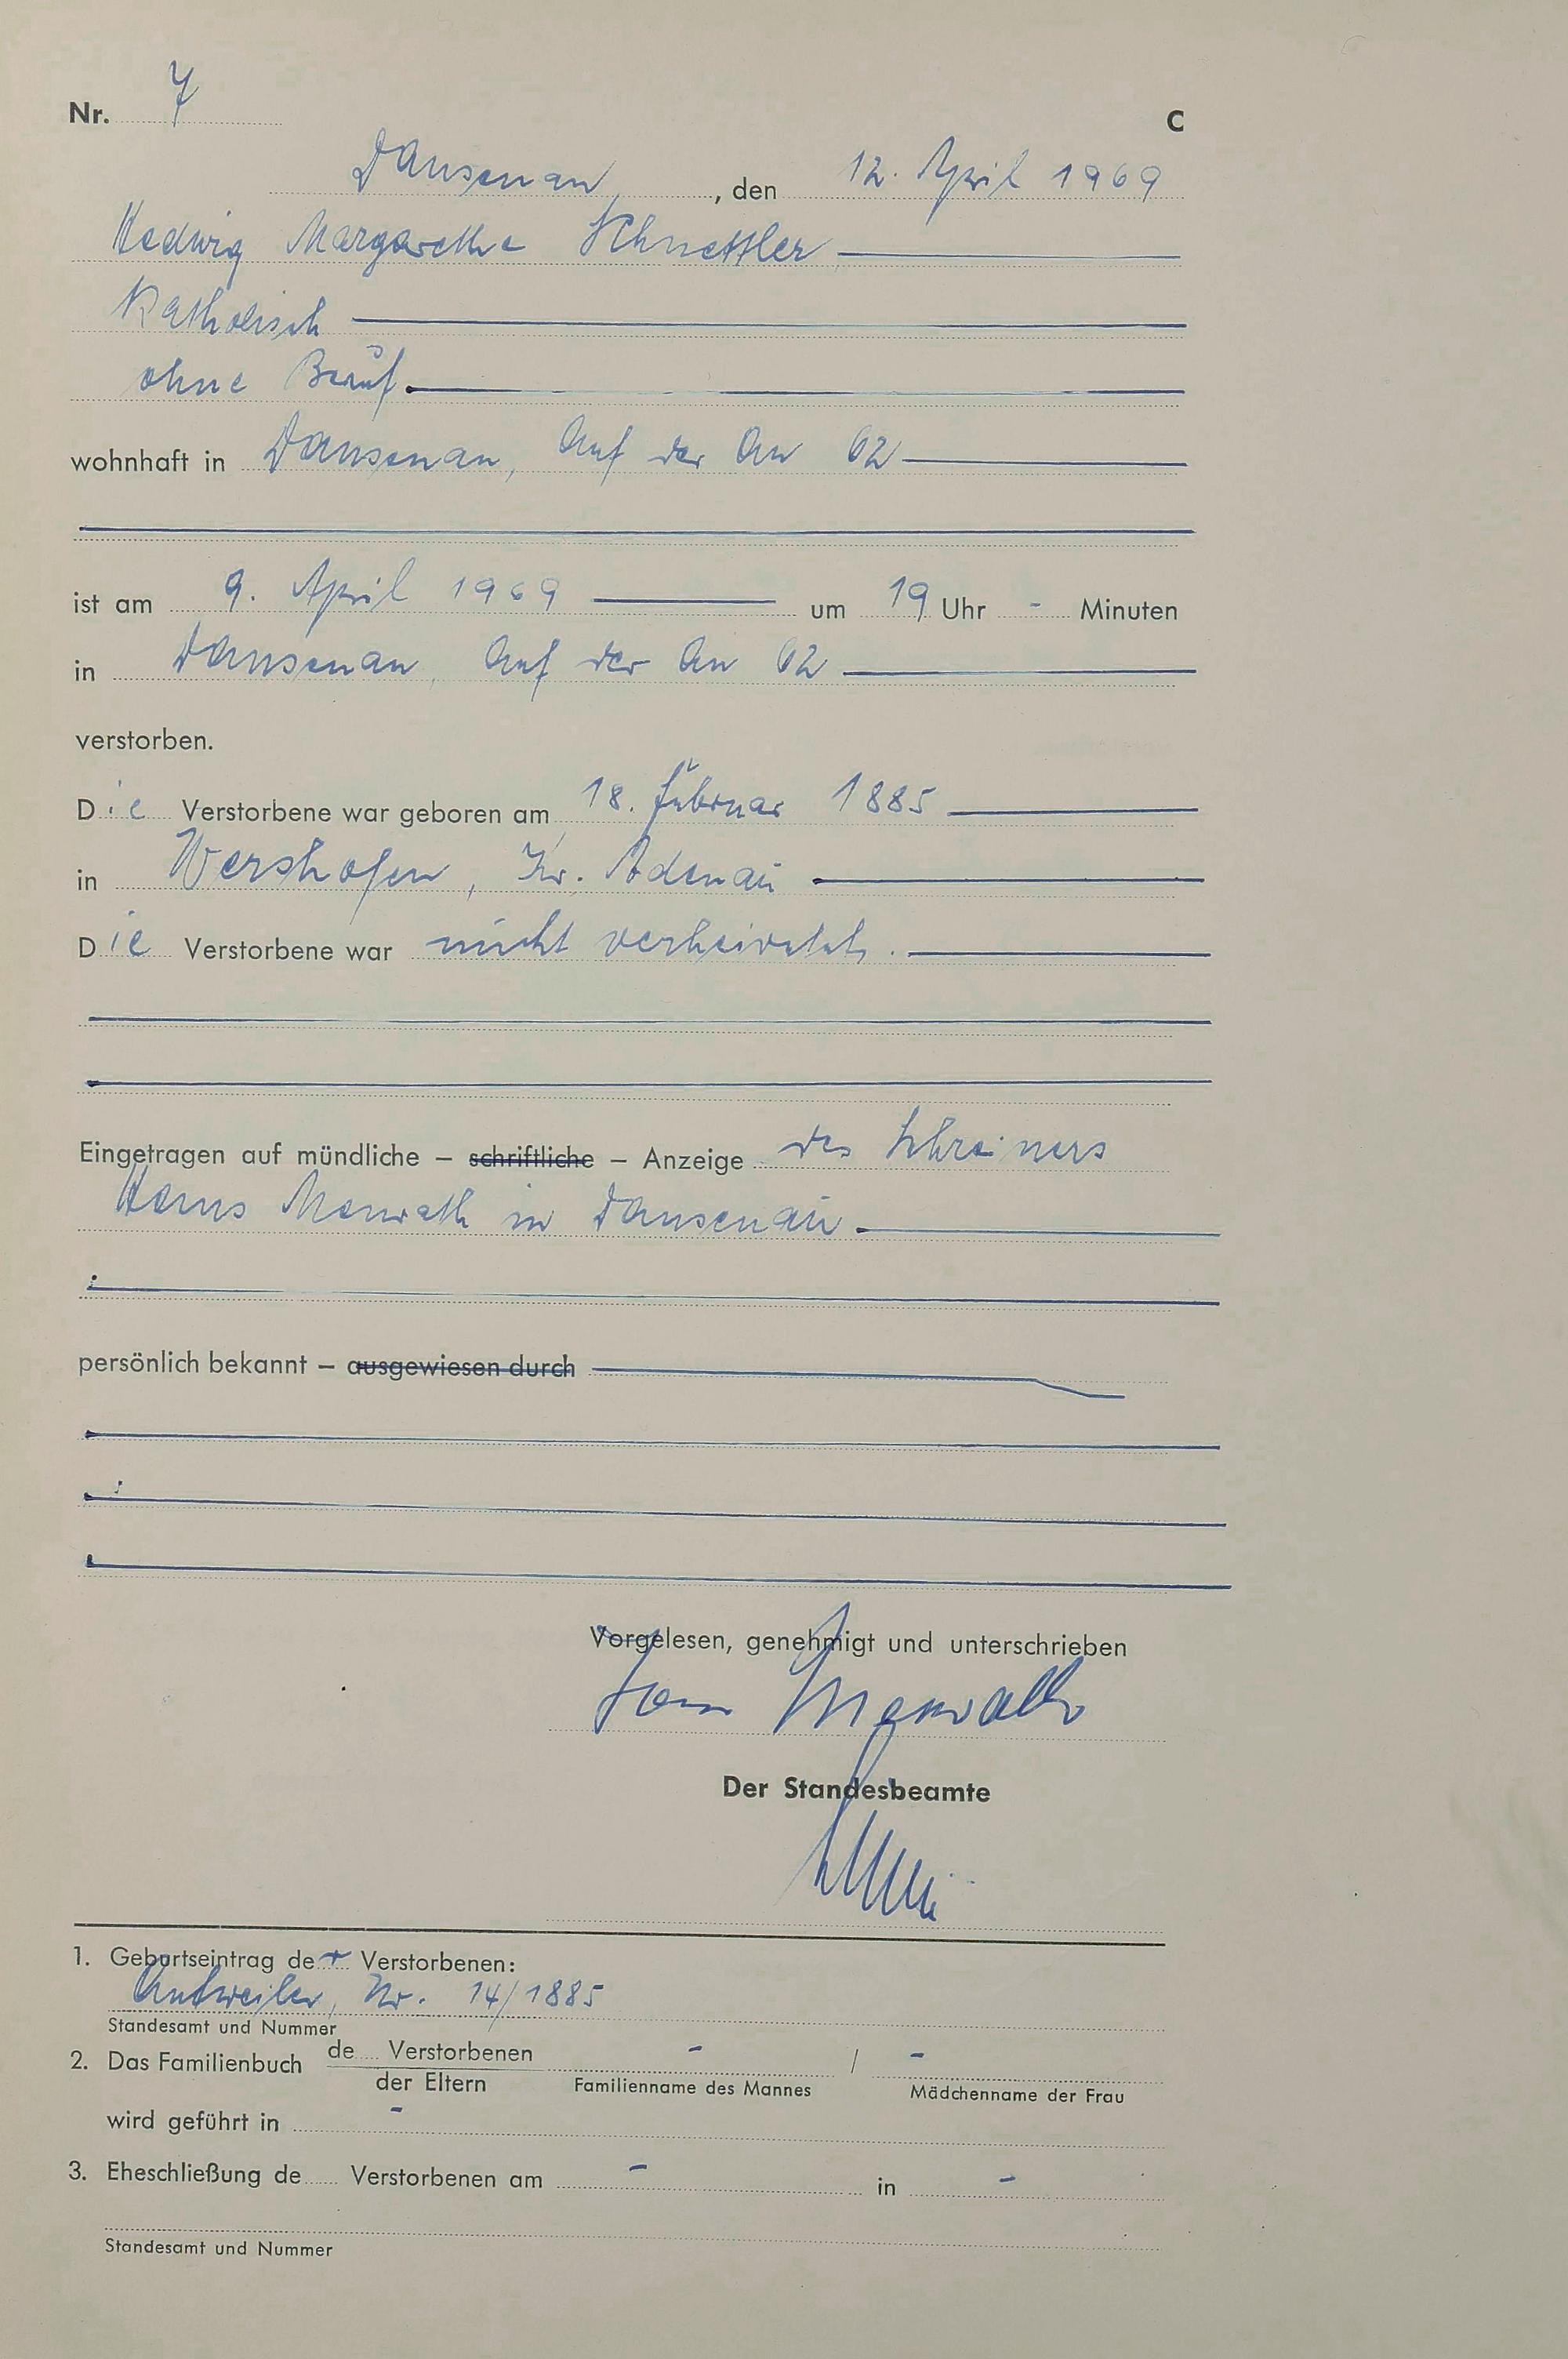 Nr. 7
C
Dausenau, den 12. April 1969
Hedwig Margarethe Schnettler
Katholisch
ohne Beruf
wohnhaft in Dausenau, Auf der Au 62
ist am 9. April 1969 um 19 Uhr - Minuten
in Dausenau, Auf der Au 62
verstorben.
Die Verstorbene war geboren am 18. Februar 1885
in Wershofen, Kr. Adenau
Die Verstorbene war nicht verheiratet.
Eingetragen auf mündliche – schriftliche – Anzeige des Schreiners
Hans in Dausenau
persönlich bekannt – ausgewiesen durch
Vorgelesen, genehmigt und unterschrieben
Der Standesbeamte
1. Geburtseintrag der Verstorbenen:
Antweiler, Nr. 14/1885
Standesamt und Nummer
2. Das Familienbuch de Verstorbenen - / -
der Eltern Familienname des Mannes Mädchenname der Frau
wird geführt in -
3. Eheschließung de Verstorbenen am - in -
Standesamt und Nummer